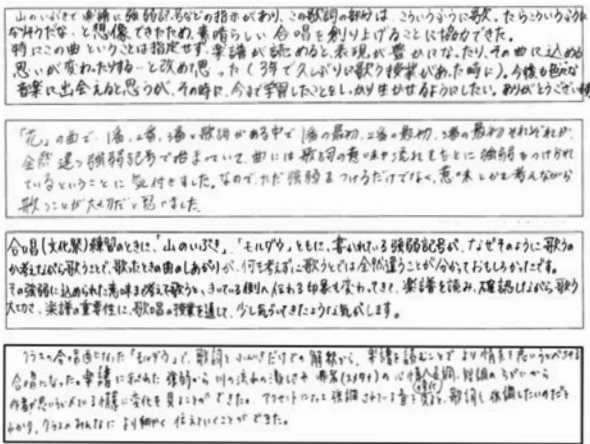 山のいぶきで楽譜に強弱記号などの指示があり、この歌詞の部分は、こういうふうに歌ったらこういうふうに
なりそうだな…と想像できたため、素晴らしい合唱を創り上げることに協力できた。
特にこの曲ということは指定せず、楽譜が読めると、表現が豊かになったり、その曲に込める
思いが変わったりする…と改めて思った(3年で久しぶりに歌う授業があった時に)。今後も色んな
音楽に出会えると思うが、その時に、今まで学習したことをしっかり生かせるようにしたい。ありがとうございま
「花」の曲で、1番、2番、3番と歌詞がある中で1番の最初、2番の最初、3番の最初それぞれが、
全然違う強弱記号で始まっていて、曲には歌詞の意味や流れをもとに強弱をつけられ
ているということに気付きました。なので、ただ強弱をつけるだけでなく、意味とかを考えながら
歌うことが大切だと思いました。
合唱(文化祭)練習のときに、「山のいぶき」、「モルダウ」ともに、書かれている強弱記号が、なぜそのように歌うの
か考えながら歌うことで、歌ったときの曲のしあがりが、何も考えずに歌うとでは全然違うことが分かっておもしろかったです。
その強弱に込められた意味を考えて歌うと、きいている側の伝わる印象も変わってきて、楽譜を読み、確認しながら歌う
大切さ、楽譜の重要性に、歌唱の授業を通して、少し気づいてきたような気がします。
クラスの合唱曲になった「モルダウ」で、歌詞とふんいきだけでの解釈から、楽譜を読むことでより情景を思いうかべさせる
合唱になった。楽譜に示された強弱から川の流れの激しさや
作者が思いうかべている情景に変化を見ることができた。アクセントによる強調されている音を見ると、歌詞も強調したいのだと
わかり、クラスのみんなにより細かく伝えていくことができた。